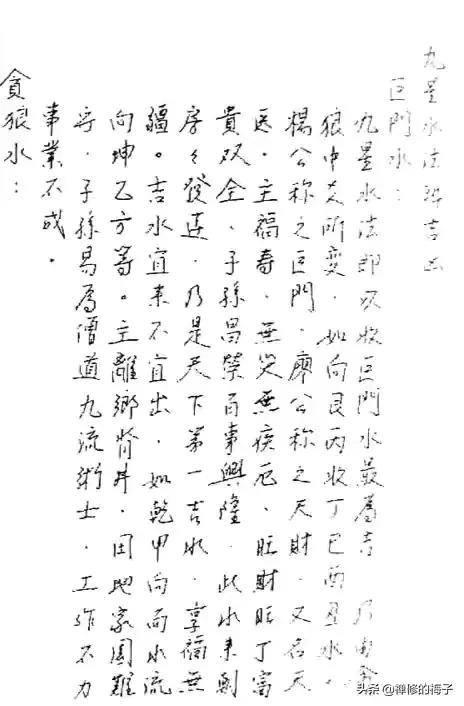 九星水法辨吉凶
巨門水：
九星水法即以收巨門水最爲吉 乃由貪
狼中爻所變．如向艮丙收丁巳酉丑水．
楊公称之巨門．廖公称之天財．又名天
医．主福壽．無災無疾厄．旺財旺丁富
貴双全．子孫昌榮百事興隆．此水来朝
房々發達．乃是天下第一吉水．享福無
疆。吉水宜来不宜出．如乾甲向而水流
向坤乙方等。主離鄉背井．田地家園難
守．子孫易爲僧道九流術士．工作不力
事業不成．
貪狼水：
头条 @禅修的梅子